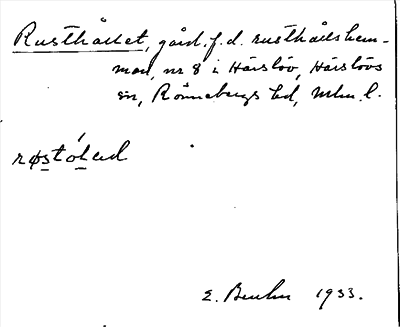 Rusthållet, gård, f.d. rusthållshem-
man, nr 8 i Härslöv, Härslövs
sn, Rönnebergs hd, Mlm. l.
røstóləd
E. 1933.